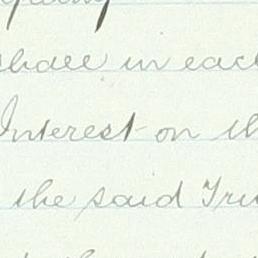 shall in each
Interest on th
the said Tru